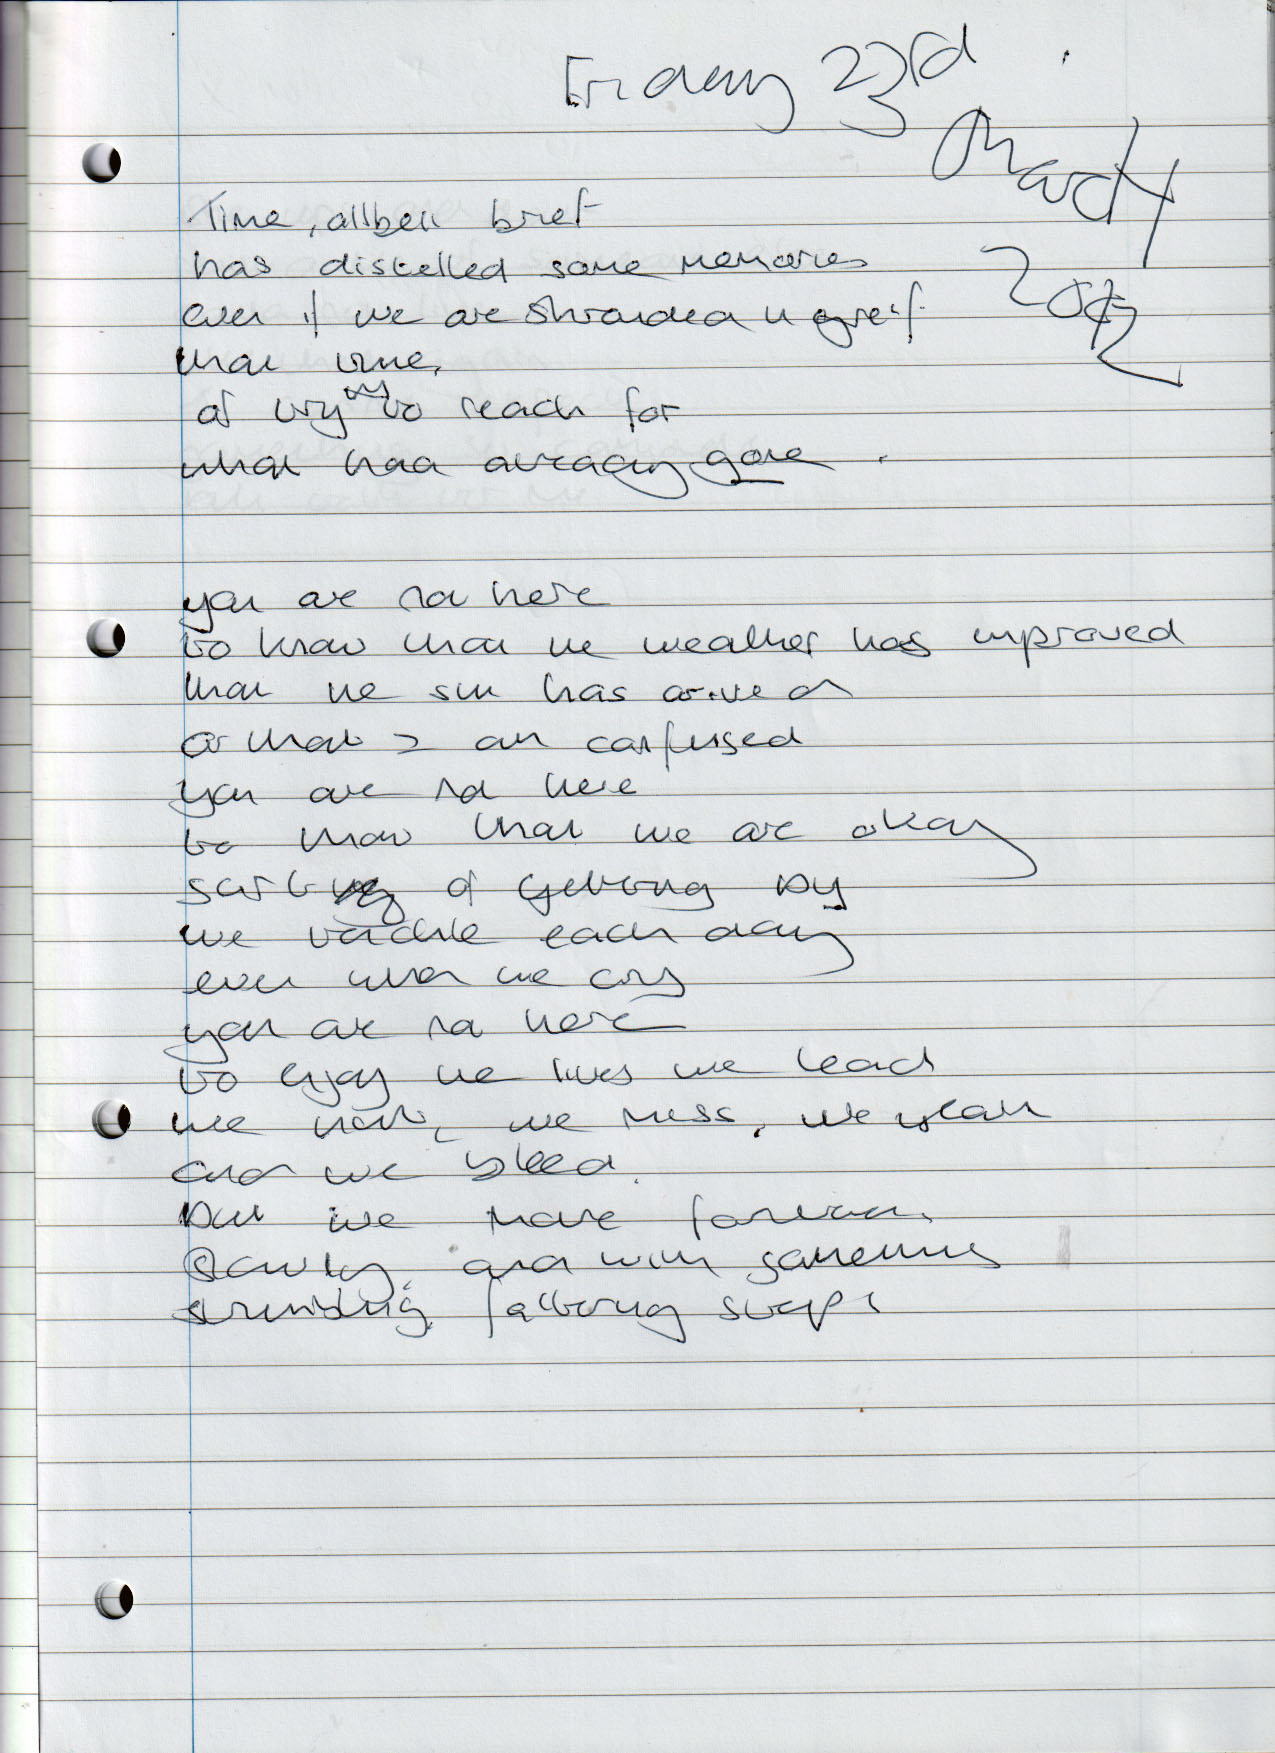 Friday 23rd
March
2012
Time, allbeit brief
has distelled some memories
even if we are shrouded in grief
that time,
of trying to reach for
what had already gone.
you are not here
to know that the weather has improved
that the sun has arrived
or that I am confused
you are not here
to know that we are okay
sort of getting by
we tackle each day
even when we cry
you are not here
to enjoy the lives we lead
we hurt, we miss, we yearn
and we bleed.
but we move forward,
slowly, and with
faltering steps